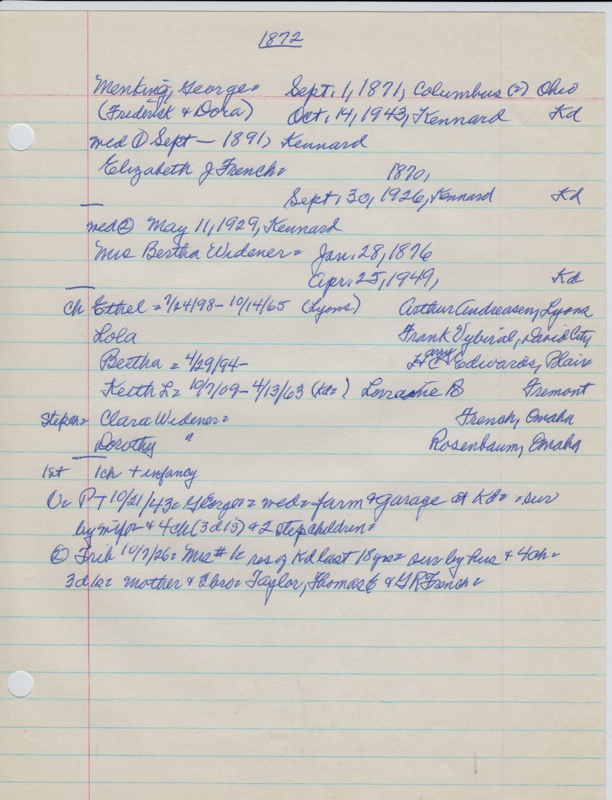 1872
Menking, George = Sept. 1, 1871, Columbus (?) Ohio
(Fredrick & Dora) Oct. 14, 1943, Kennard Kd
med ① Sept — 1891, Kennard
Elizabeth J French = 1870,
Sept. 30, 1926, Kennard Kd
med ② May 11, 1929, Kennard
Mrs Bertha Widener = Jan. 28, 1876
Apr. 25, 1949, Kd
ch Ethel = 7/24/98 - 10/14/65 (Lyons) Arthur Andreasen, Lyons
Lola Frank Vybiral, David City
Bertha = 4/29/94- Harry Edwards, Blair
Keith L = 10/7/09 - 4/13/63 (Kd=) Lorraine B Fremont
Step ch = Clara Widener = French, Omaha
Dorothy " Rosenbaum, Omaha
1st 1 ch + infancy
P-T 10/21/43 = George = med = farm & garage at Kd = sur
by & 4 ch (3 d 1 s) & 2 step children =
② Trib 10/7/26 = Mrs # 1 = res of Kd last 18 yrs = sur by hus & 4 ch =
3 d 1 s = mother & 3 bros = Taylor, Thomas E & G R French =